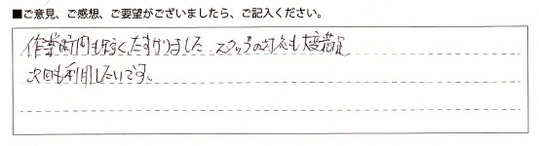 ■ご意見、ご感想、ご要望がございましたら、ご記入ください。
作業時間も短くたすかりました スタッフの対応も大満足
次回も利用したいです。